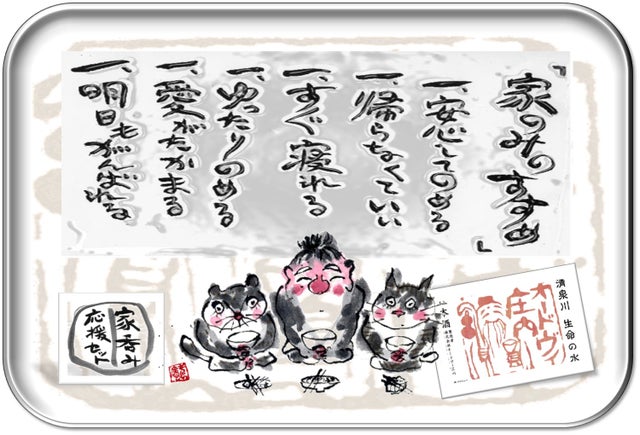 「家のみのすすめ」
一、安心してのめる
一、帰らなくていい
一、すぐ寝れる
一、ゆったりのめる
一、愛がたかまる
一、明日もがんばれる
家呑み
応援セット
清泉川 生命の水
オードヴィ
庄内